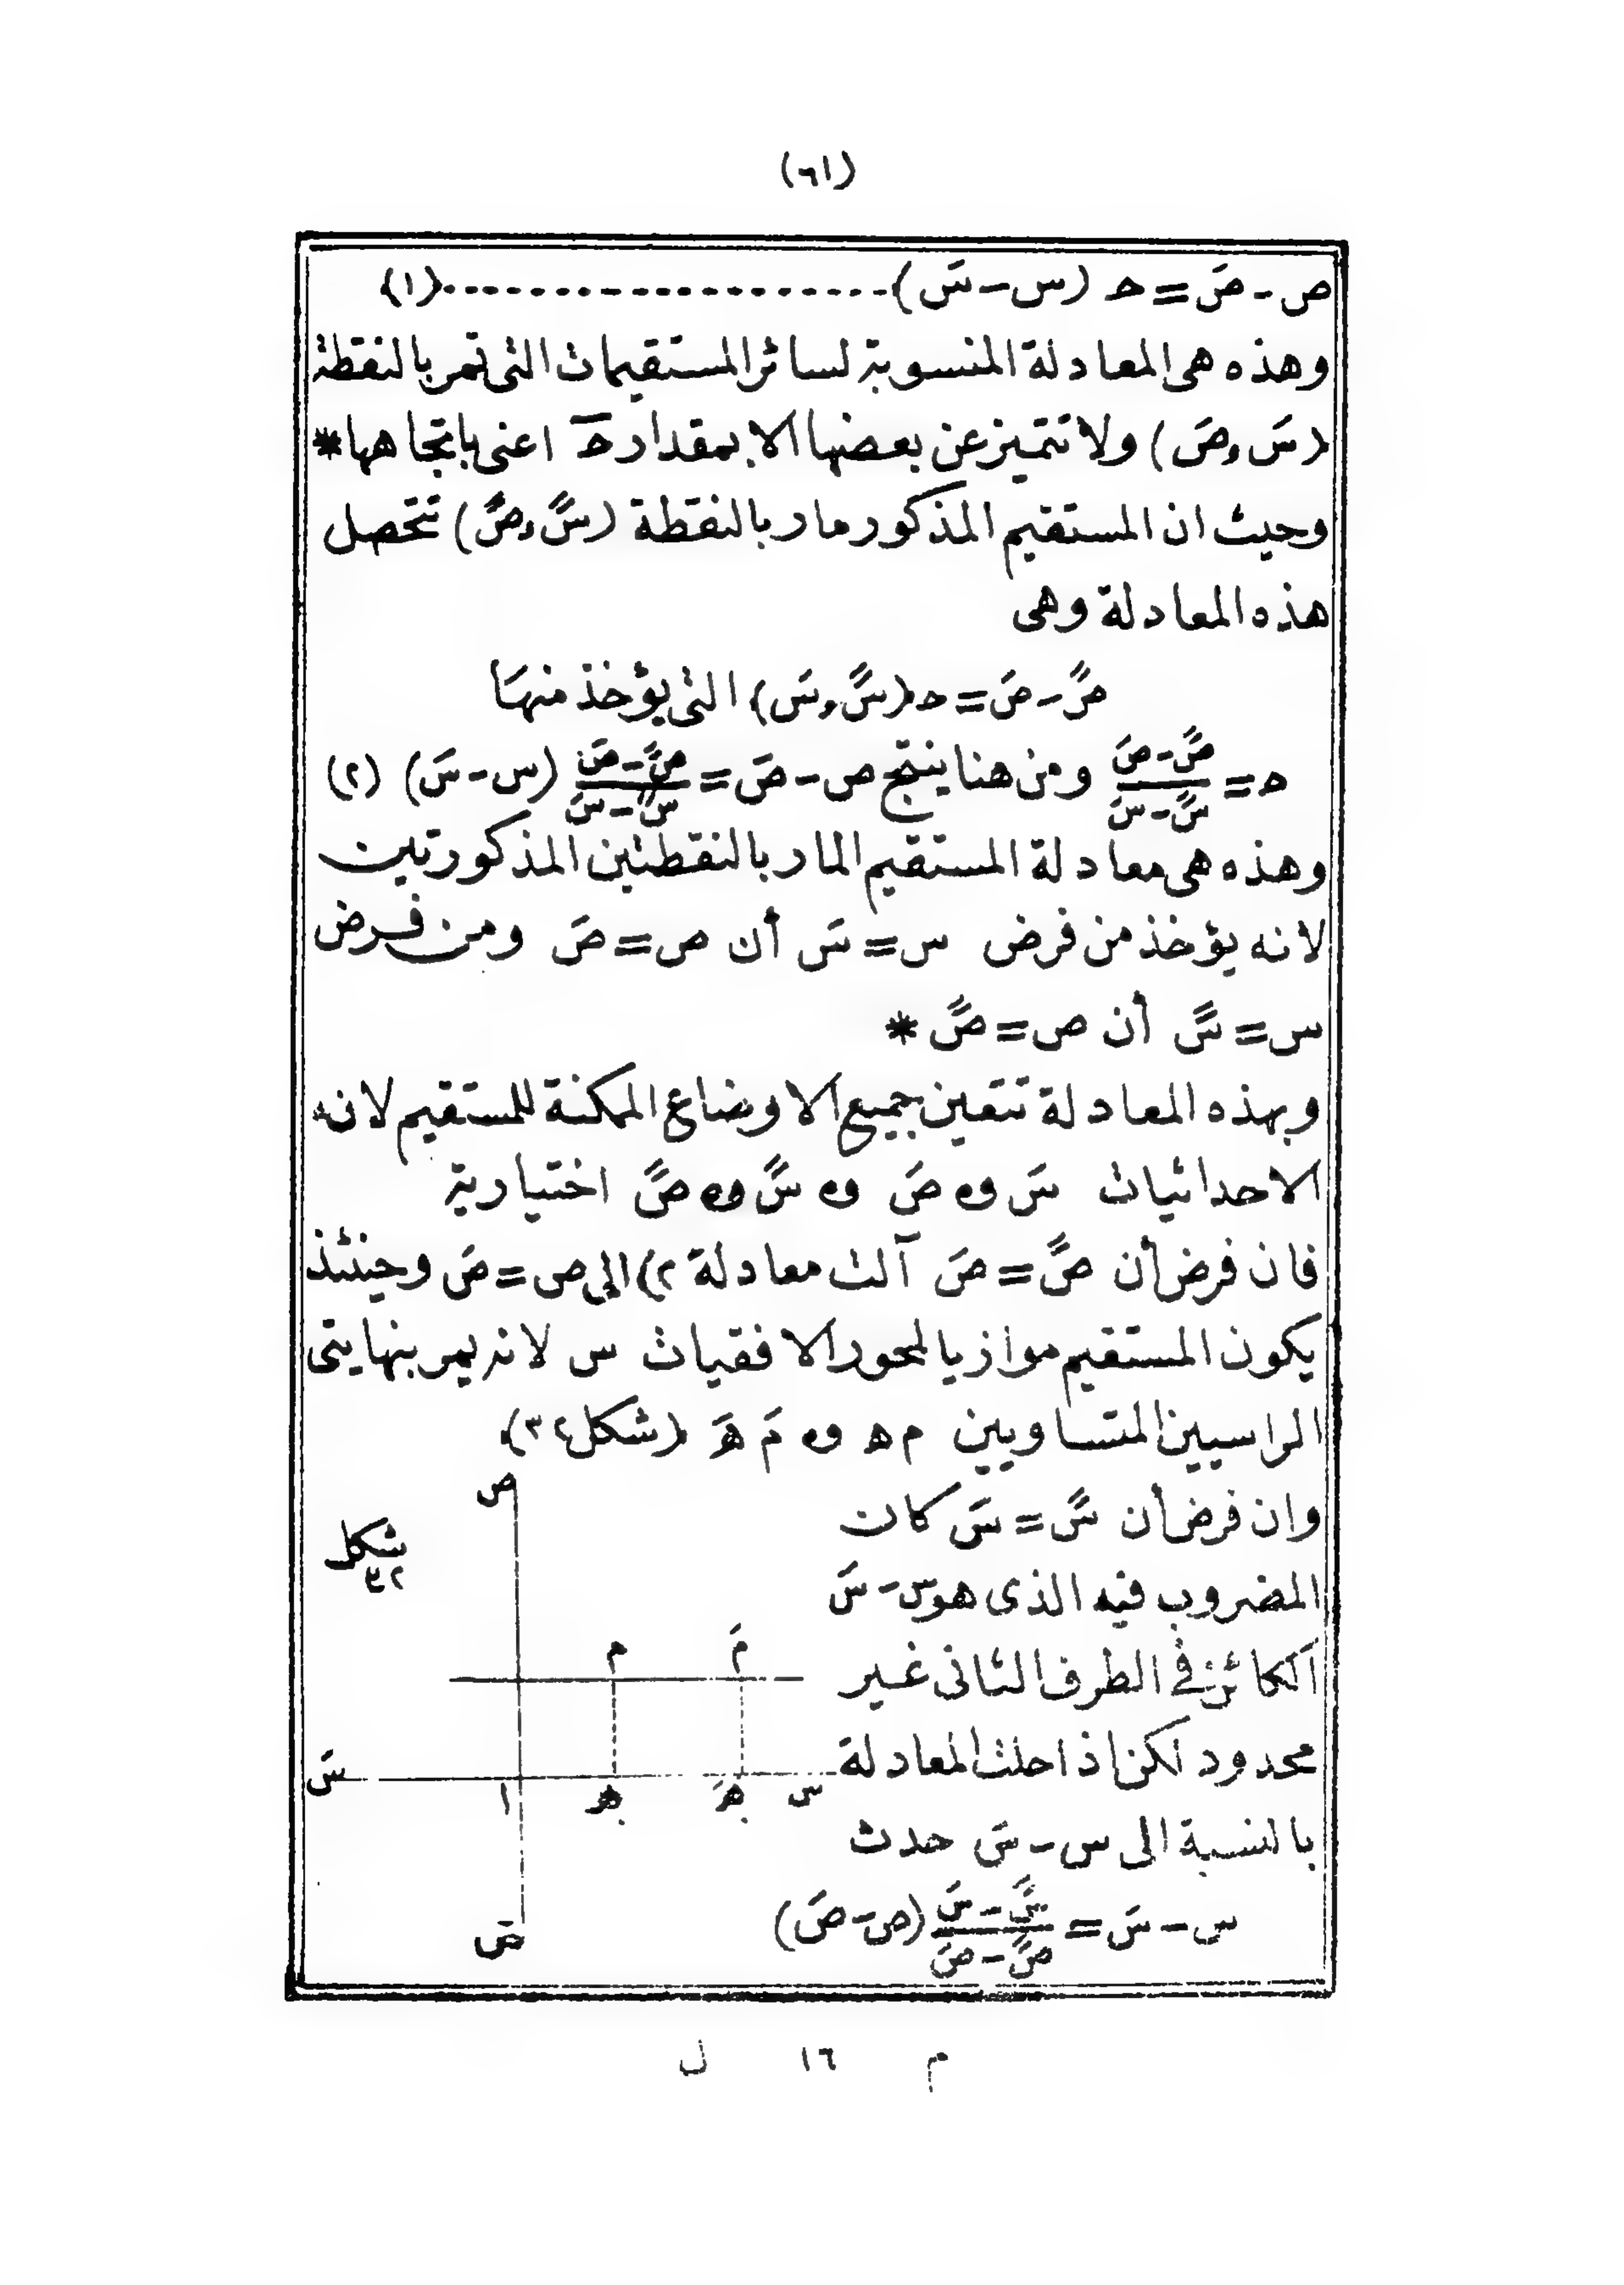 (٦١)
ص - صَ = حـ (س - سَ) .................... (١)
وهذه هى المعادلة المنسوبة لسائر المستقيمات التى تمر بالنقطة
(سَ و صَ) ولا تتميز عن بعضها الا بمقدار حـ اعنى باتجاهها *
وحيث ان المستقيم المذكور مار بالنقطة (سً و صً) تتحصل
هذه المعادلة وهى
صً - صَ = حـ (سً و سَ) التى يؤخذ منها
حـ = (صً - صَ)/(سً - سَ) ومن هنا ينتج ص - صَ = (صً - صَ)/(سً - سَ) (س - سَ) (٢)
وهذه هى معادلة المستقيم المار بالنقطتين المذكورتين
لانه يؤخذ من فرض س = سَ أن ص = صَ ومن فرض
س = سً أن ص = صً *
وبهذه المعادلة تتعين جميع الاوضاع الممكنة للمستقيم لانه
الاحداثيات سَ و صَ و سً و صً اختيارية
فان فرض أن صً = صَ آلت معادلة ٢) الى ص = صَ وحينئذ
يكون المستقيم موازيا لمحور الافقيات س لانه يمر بنهايتى
الراسيين المتساويين م ه و مَ هَ (شكل ٣٢)
وان فرض أن سً = سَ كان
المضروب فيه الذى هو س - سَ
الكائن فى الطرف الثانى غير
محدود لكن اذا حلت المعادلة
بالنسبة الى س - سَ حدث
س - سَ = (سً - سَ)/(صً - صَ) (ص - صَ)
شكل
٣٢
ص
م مَ
سَ ا ه هَ س
صَ
م ١٦ ل